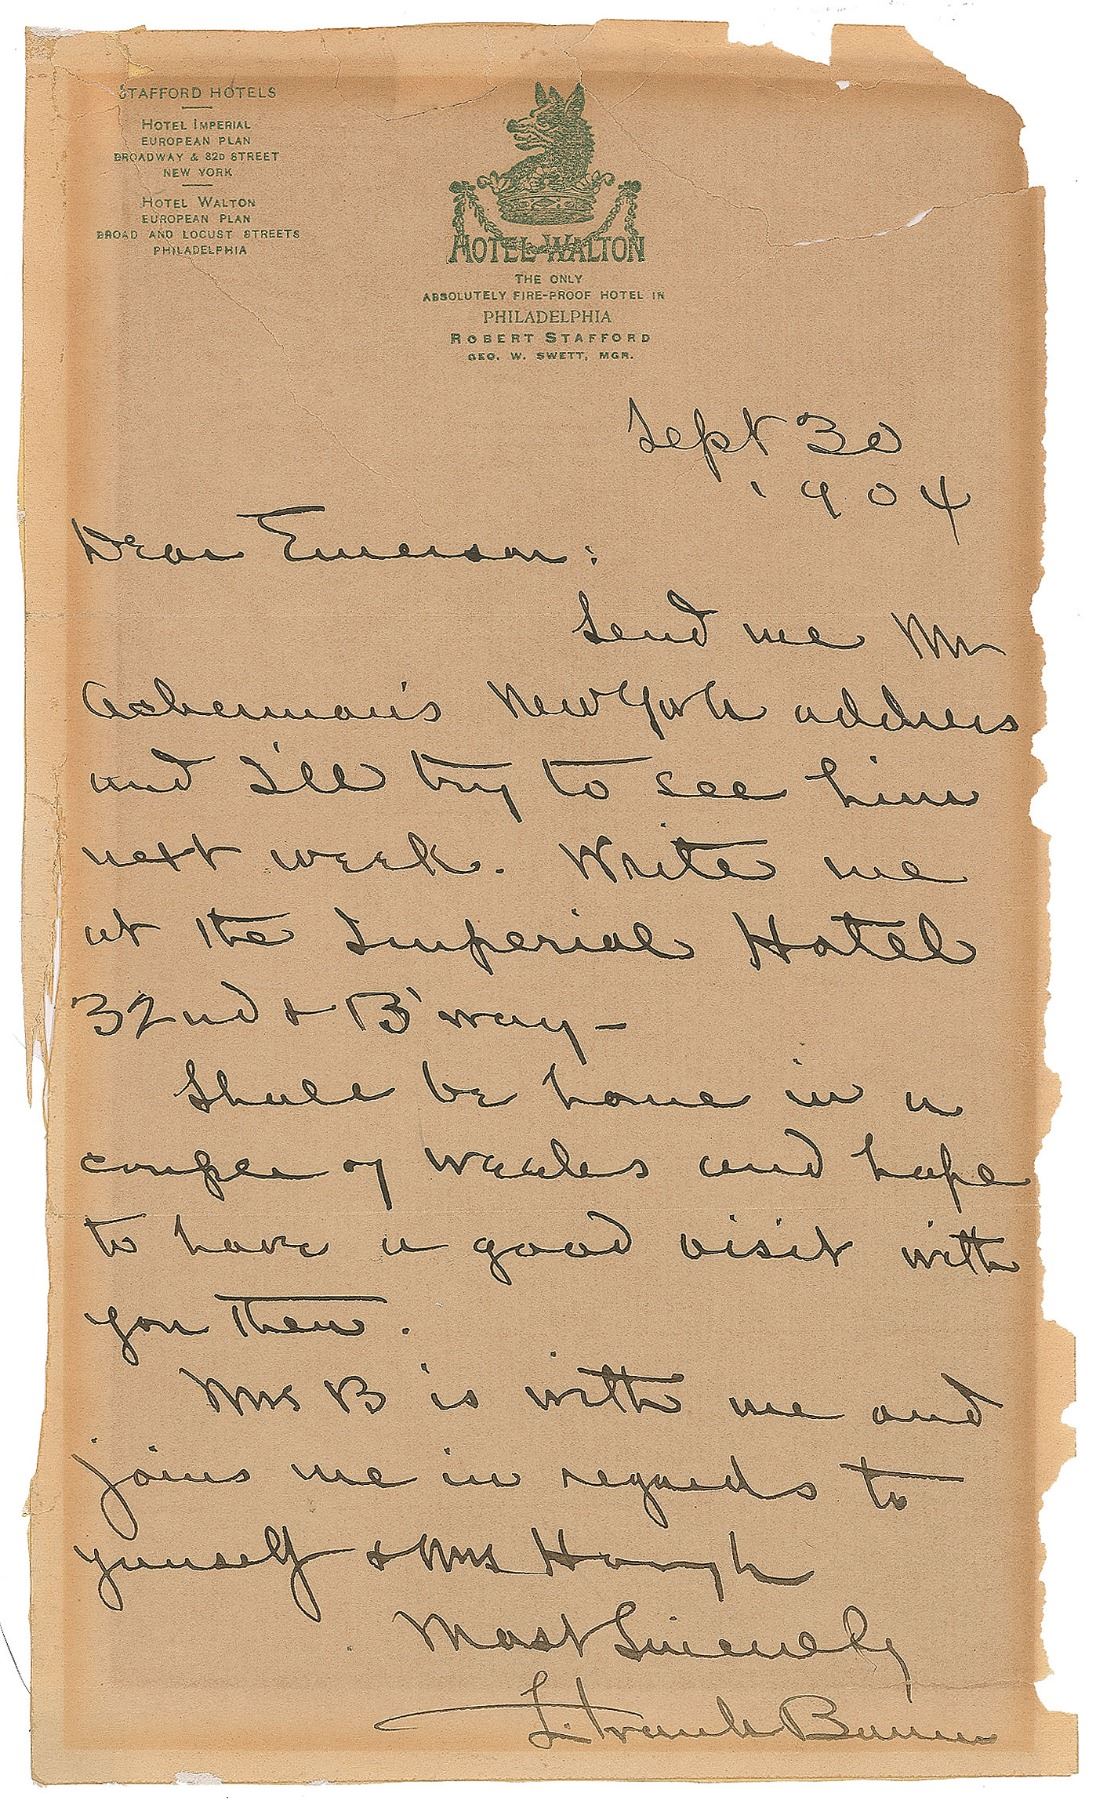 STAFFORD HOTELS
HOTEL IMPERIAL
EUROPEAN PLAN
BROADWAY & 32D STREET
NEW YORK
HOTEL WALTON
EUROPEAN PLAN
BROAD AND LOCUST STREETS
PHILADELPHIA
HOTEL WALTON
THE ONLY
ABSOLUTELY FIRE-PROOF HOTEL IN
PHILADELPHIA
ROBERT STAFFORD
GEO. W. SWETT, MGR.
Sept 30
1904
Dear Emerson:
Send me Mr
Ackerman's New York address
and I'll try to see him
next week. Write me
at the Imperial Hotel
32nd & B'way—
Shall be home in a
couple of weeks and hope
to have a good visit with
you then.
Mrs B is with me and
joins me in regards to
yourself & Mrs Hough
Most Sincerely
L. Frank Baum